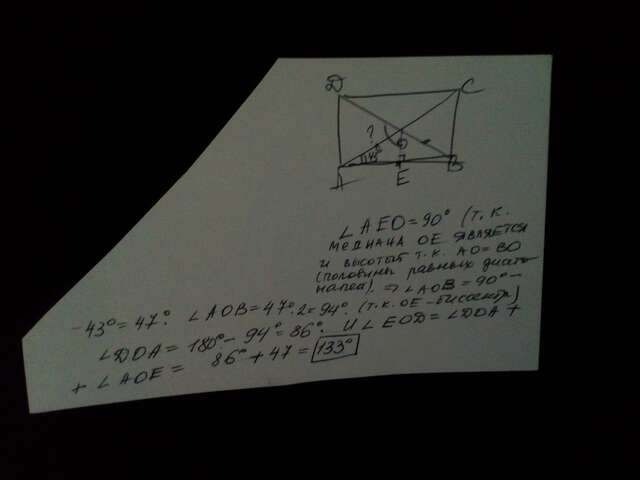 D C
?
43° O
A E B
∠AEO=90° (т.к.
медиана OE является
и высотой т.к. AO=BO
(половины равных диаго
налей), ⇒ ∠AOB=90°-
-43°=47°. ∠AOB=47°·2=94°. (т.к. OE-биссектр)
∠DOA = 180°-94°=86°. и ∠EOD=∠DOA+
+ ∠AOE = 86°+47=133°